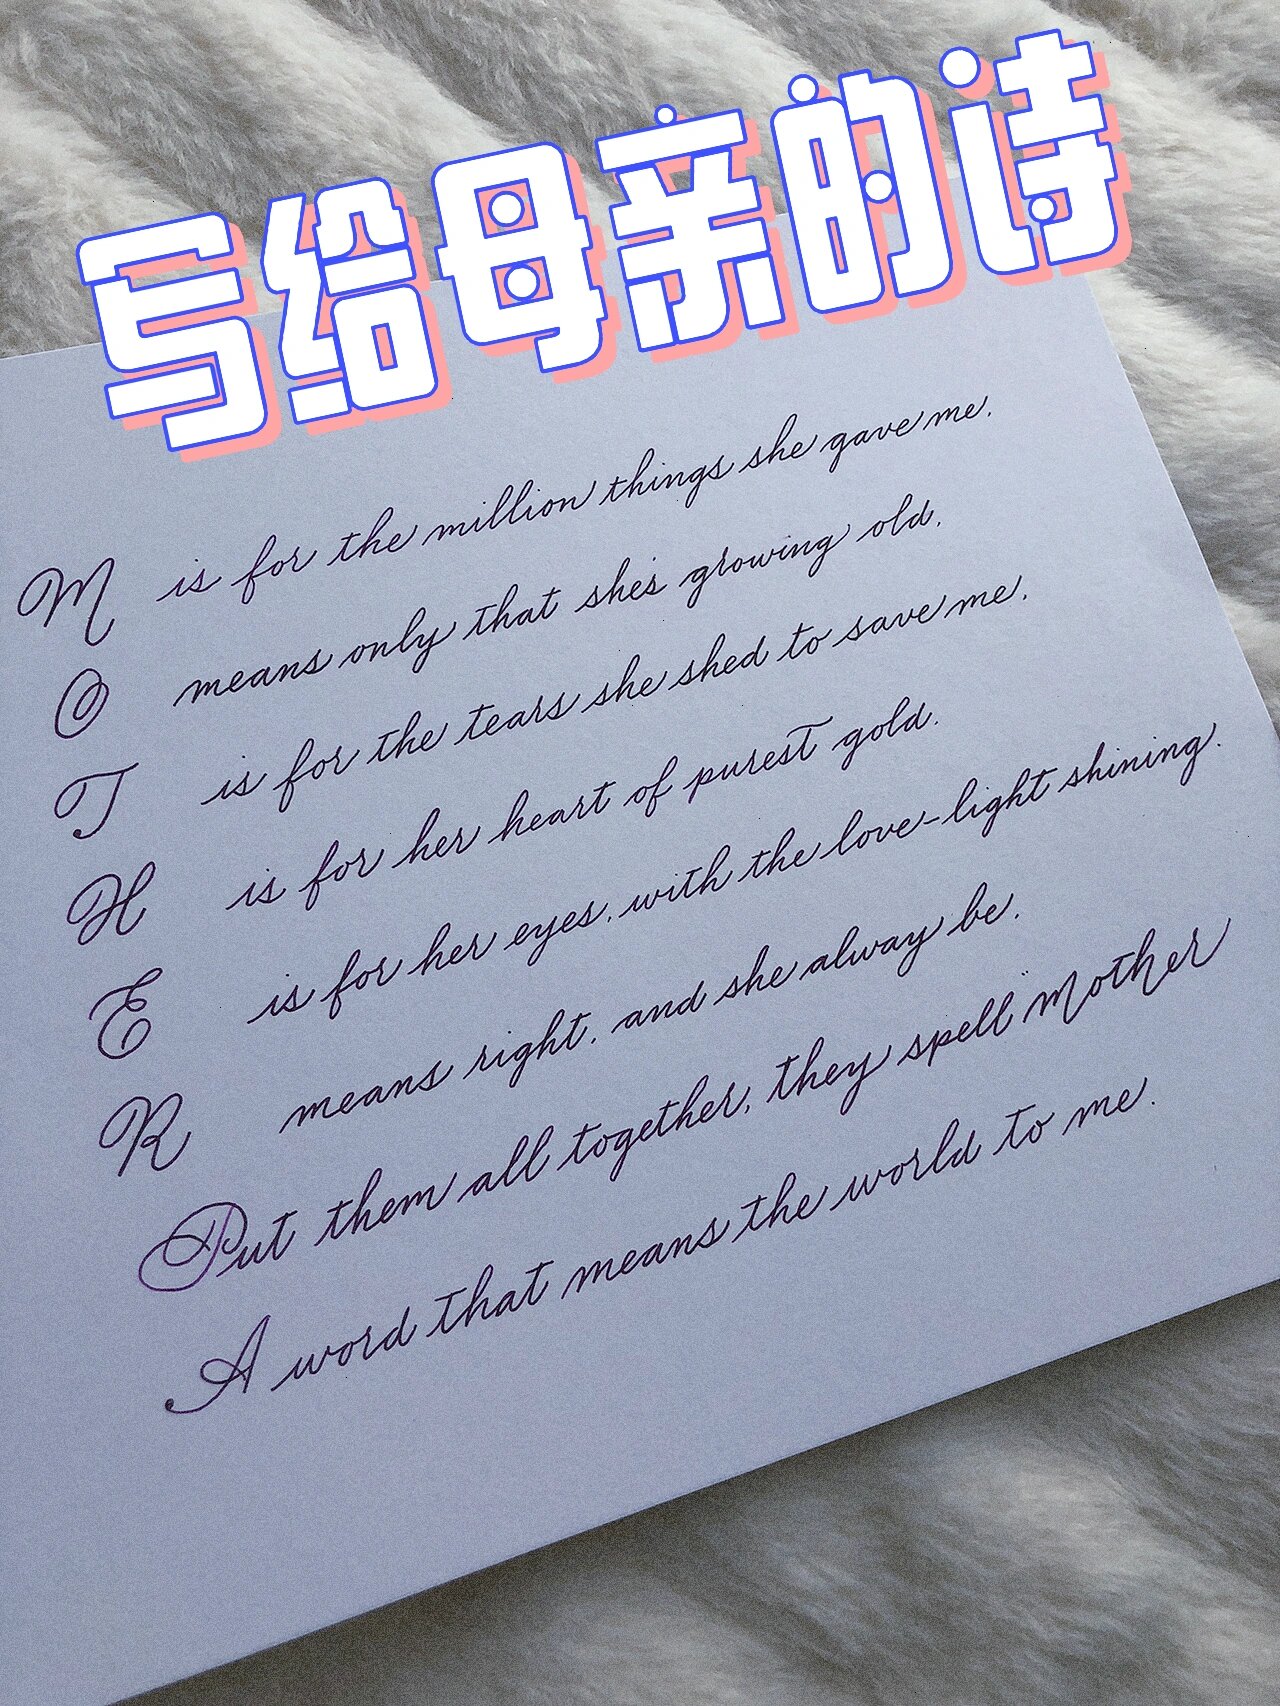 写给母亲的诗
M is for the million things she gave me.
O means only that she's growing old.
T is for the tears she shed to save me.
H is for her heart of purest gold.
E is for her eyes, with the love-light shining.
R means right, and she alway be.
Put them all together, they spell "Mother
A word that means the world to me.